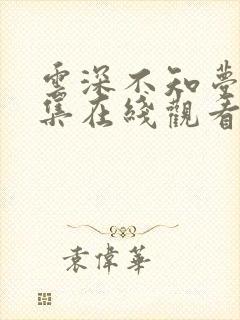 雲深不知夢
集在綫觀看
袁偉華